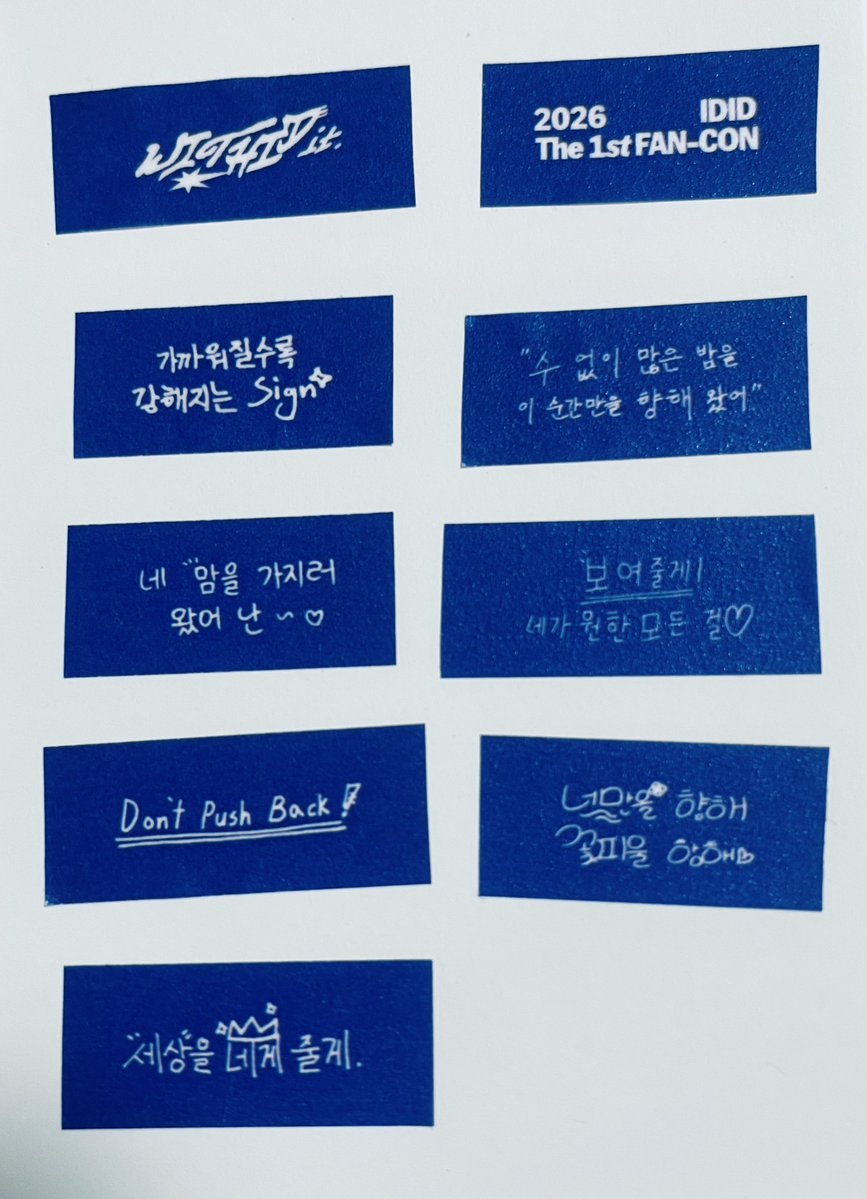 it.
2026 IDID
The 1st FAN-CON
가까워질수록
강해지는 Sign
"수 없이 많은 밤을
이 순간만을 향해 왔어"
네 "맘을 가지러
왔어 난 ~ ♡
보여줄게!
네가 원한 모든 걸♡
Don't Push Back!
널만을 향해
꽃피울 항해
"세상"을 네게 줄게.